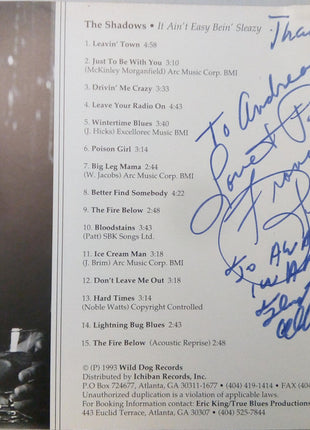 The Shadows • It Ain't Easy Bein' Sleazy
1. Leavin' Town 4:58
2. Just To Be With You 3:10
(McKinley Morganfield) Arc Music Corp. BMI
3. Drivin' Me Crazy 3:33
4. Leave Your Radio On 4:16
5. Wintertime Blues 3:40
(J. Hicks) Excellorec Music BMI
6. Poison Girl 3:14
7. Big Leg Mama 2:44
(W. Jacobs) Arc Music Corp. BMI
8. Better Find Somebody 4:22
9. The Fire Below 2:48
10. Bloodstains 3:43
(Patt) SBK Songs Ltd.
11. Ice Cream Man 3:38
(J. Brim) Arc Music Corp. BMI
12. Don't Leave Me Out 3:18
13. Hard Times 3:14
(Noble Watts) Copyright Controlled
14. Lightning Bug Blues 2:43
15. The Fire Below (Acoustic Reprise) 2:48
(C) (P) 1993 Wild Dog Records
Distributed by Ichiban Records, Inc.
P.O Box 724677, Atlanta, GA 30311-1677 • (404) 419-1414 • FAX (404
Unauthorized duplication is a violation of applicable laws.
For Booking Information contact: Eric King/True Blues Productions
443 Euclid Terrace, Atlanta, GA 30307 • (404) 525-7844
To Andrea
Love &
From
To